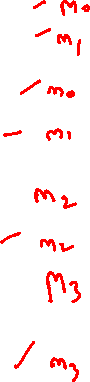 – m₀
– m₁
– m₀
– m₁
m₂
– m₂
M₃
– m₃